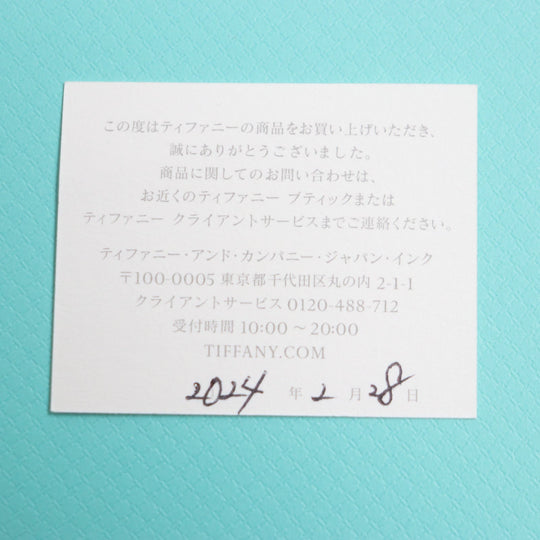 この度はティファニーの商品をお買い上げいただき、
誠にありがとうございました。
商品に関してのお問い合わせは、
お近くのティファニー ブティックまたは
ティファニー クライアントサービスまでご連絡ください。
ティファニー・アンド・カンパニー・ジャパン・インク
〒100-0005 東京都千代田区丸の内 2-1-1
クライアントサービス 0120-488-712
受付時間 10:00 〜 20:00
TIFFANY.COM
2024 年 2 月 28 日